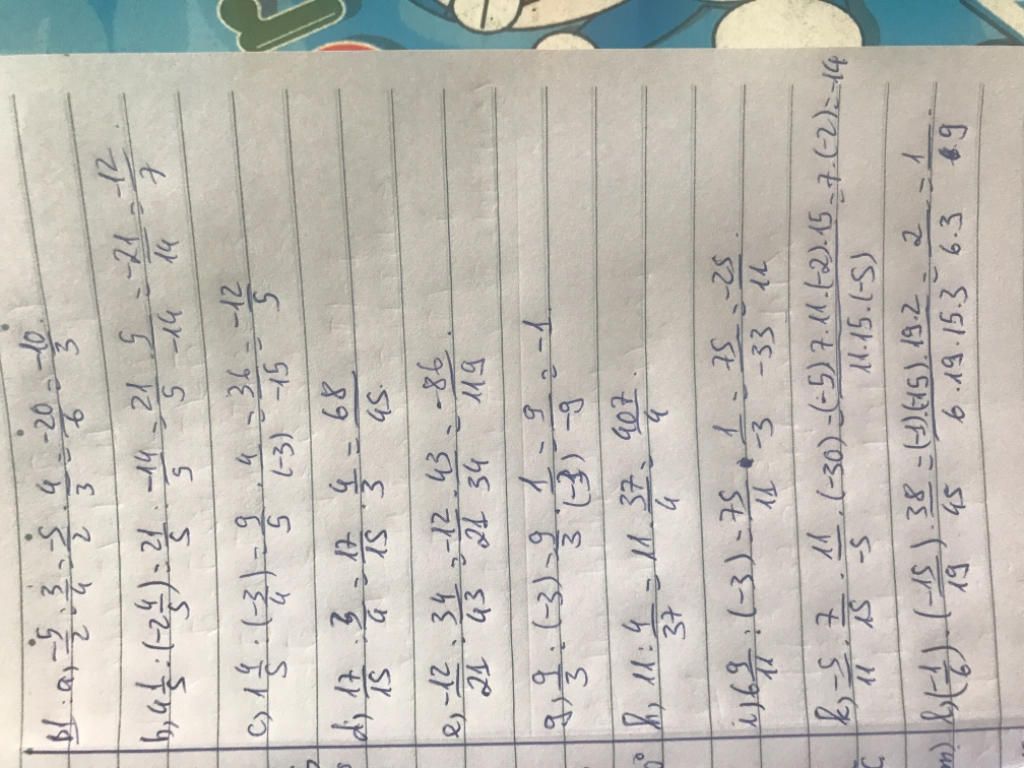 B1. a, -5/2 : 3/4 = -5/2 . 4/3 = -20/6 = -10/3.
b, 4 1/5 : (-2 4/5) = 21/5 : -14/5 = 21/5 . 5/-14 = -21/14 = -12/7.
c, 1 4/5 : (-3/4) = 9/5 . 4/(-3) = 36/-15 = -12/5
d, 17/15 : 3/4 = 17/15 . 4/3 = 68/45.
e, -12/21 : 34/43 = -12/21 . 43/34 = -86/119.
g, 9/3 : (-3) = 9/3 . 1/(-3) = 9/-9 = -1.
h, 11 : 4/37 = 11 . 37/4 = 407/4.
i, 6 9/11 : (-3) = 75/11 . 1/-3 = 75/-33 = -25/11.
k, -5/11 . 7/15 . 11/-5 . (-30) = (-5) 7.11.(-2).15/11.15.(-5) = 7.(-2) = -14
l, (-1/6) . (-15/19) . 38/45 = (-1).(-15).19.2/6.19.15.3 = 2/6.3 = 1/9
m,